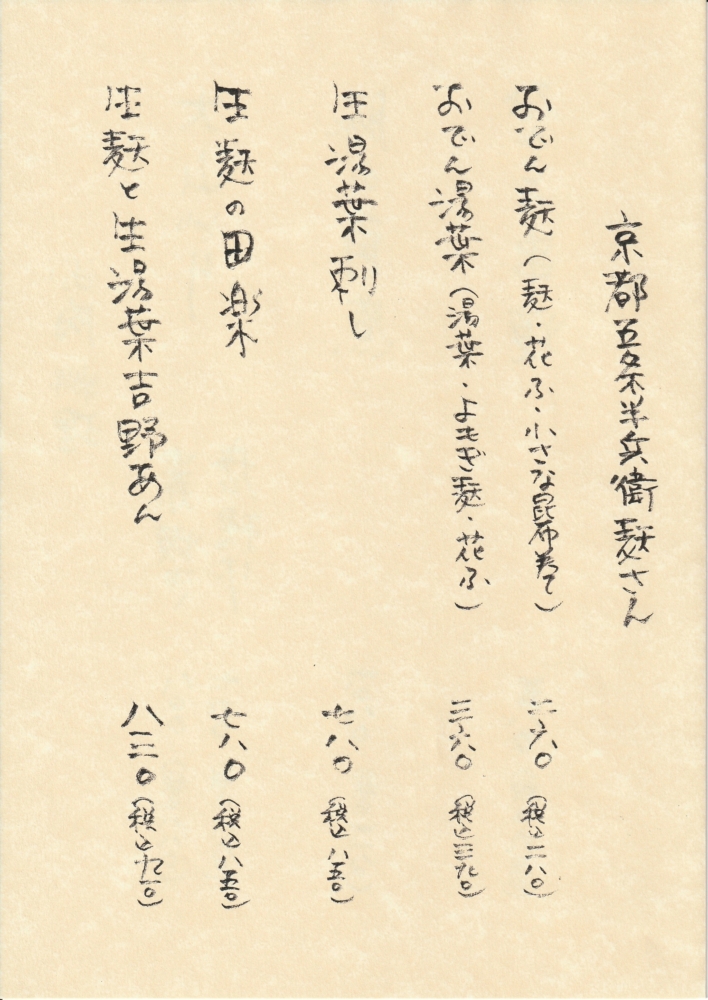 京都五条半兵衛麸さん
おでん麸（麸・花ふ・小さな昆布巻て） 二六〇（税込二八〇）
おでん湯葉（湯葉・よもぎ麸・花ふ） 三六〇（税込三九〇）
生湯葉刺し 七八〇（税込八五〇）
生麸の田楽 七八〇（税込八五〇）
生麸と生湯葉吉野あん 八三〇（税込九一〇）